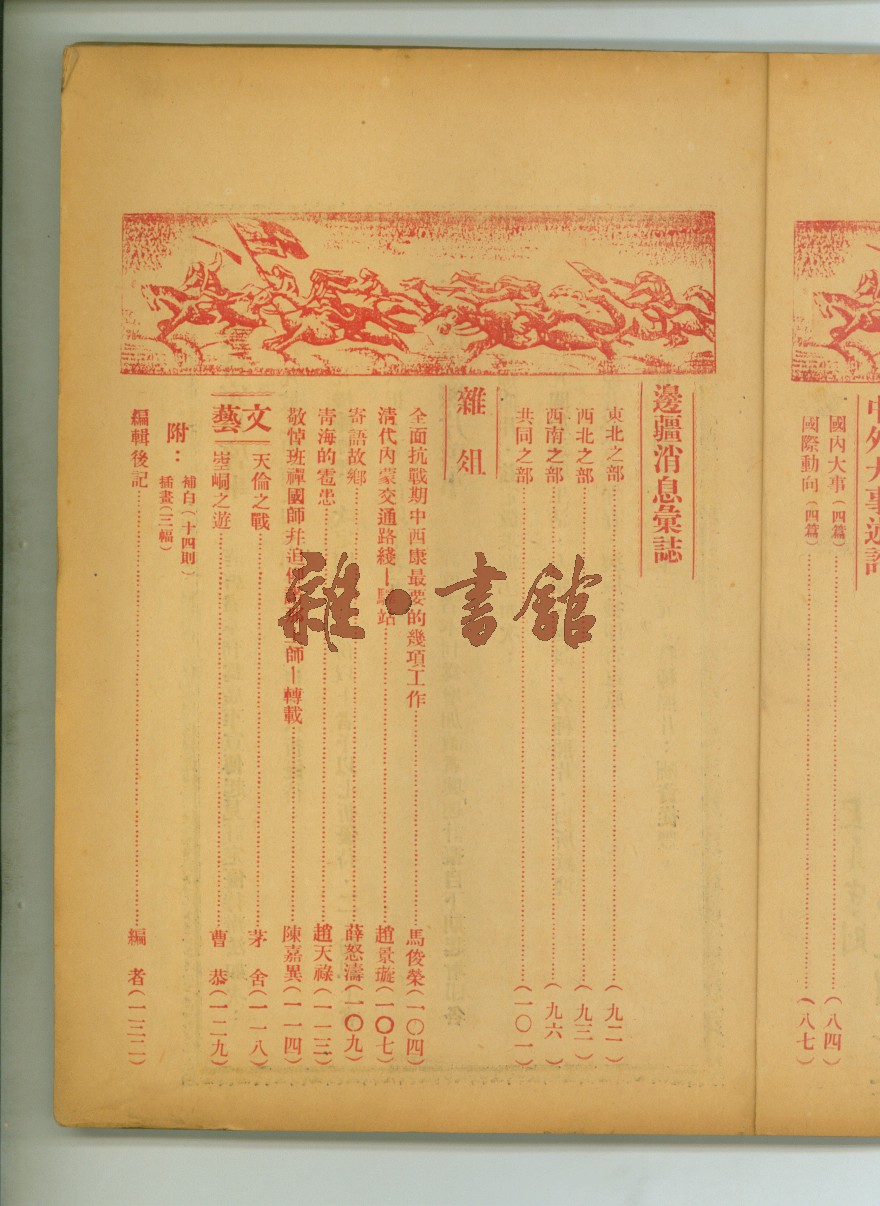 中外大事述評
國內大事(四篇)(八四)
國際動向(四篇)(八七)
邊疆消息彙誌
東北之部(九二)
西北之部(九三)
西南之部(九六)
共同之部(一〇一)
雜俎
全面抗戰期中西康最要的幾項工作 馬俊榮(一〇四)
清代內蒙交通路綫—驛站 趙景璇(一〇七)
寄語故鄉 薛怒濤(一〇九)
青海的雹患 趙天祿(一一三)
敬悼班禪國師幷追 師—轉載 陳嘉異(一一四)
文藝
天倫之戰 茅舍(一一八)
崆峒之遊 曹恭(一二九)
附:
補白(十四則)
插畫(三幅)
編輯後記 編者(一三二)
雜•書館